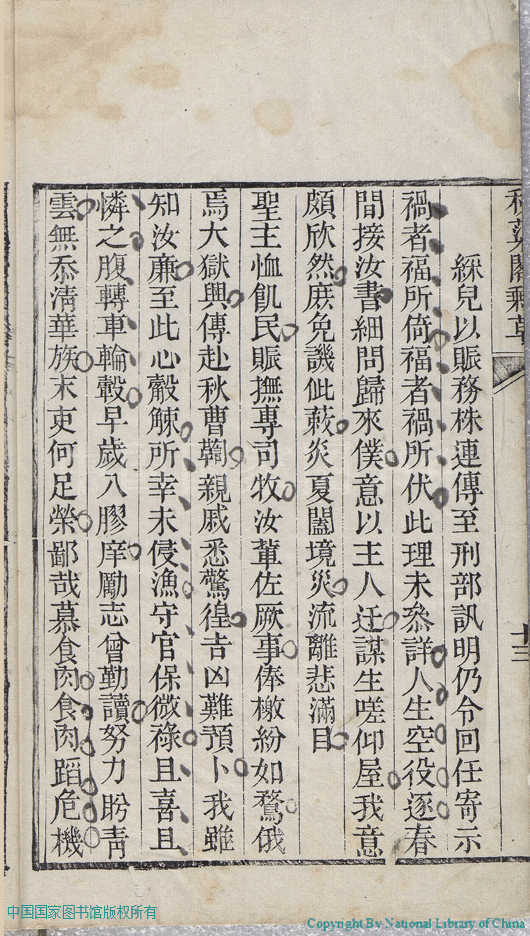 綵兒以賑務株連傳至刑部訊明仍令回任寄示
禍者福所倚福者禍所伏此理未叅詳人生空役逐春
間接汝書細問歸來僕意以主人迂謀生嗟仰屋我意
頗欣然庶免譏佌蔌炎夏闔境災流離悲滿目
聖主恤飢民賑撫專司牧汝輩佐厥事俸檄紛如鶩俄
焉大獄興傳赴秋曹鞫親戚悉驚徨吉凶難預卜我雖
知汝廉至此心觳觫所幸未侵漁守官保微祿且喜且
憐之腹轉車輪轂早歲入膠庠勵志曾勤讀努力盻靑
雲無忝淸華族末吏何足榮鄙哉慕食肉食肉蹈危機
十三
中国国家图书馆版权所有
Copyright By National Library of China